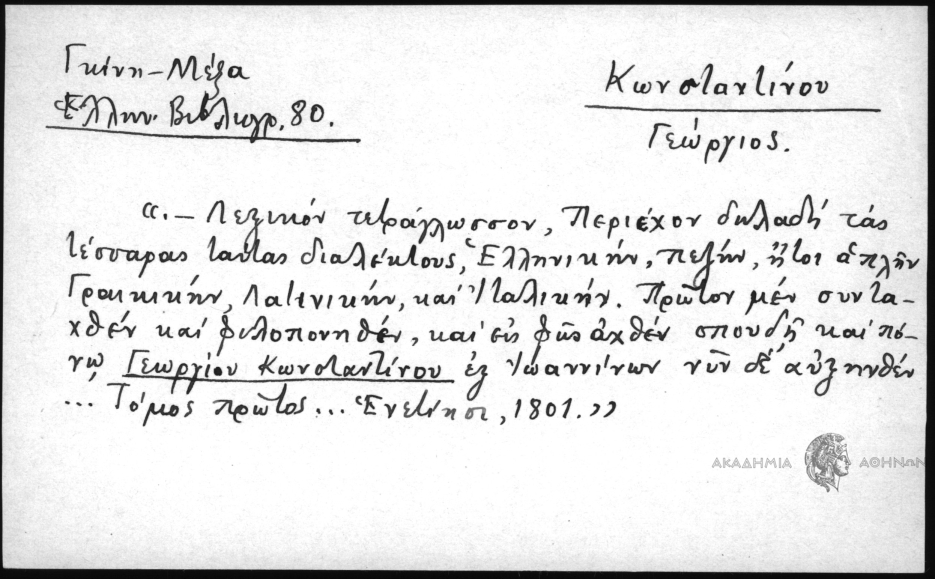 Γκίνη-Μέξα
Ἑλλην. Βιβλιογρ. 80.
Κωνσταντίνου
Γεώργιος.
«.- Λεξικόν τετράγλωσσον, Περιέχον δηλαδή τάς
τέσσαρας ταύτας διαλέκτους, Ἑλληνικήν, πεζήν, ἤτοι ἁπλῆν
Γραικικήν, Λατινικήν, καί Ἰταλικήν. Πρῶτον μέν συντα-
χθέν καί φιλοπονηθέν, καί εἰς φῶς ἀχθέν σπουδῇ καί πό-
νῳ Γεωργίου Κωνσταντίνου ἐξ Ἰωαννίνων νῦν δέ αὐξηνθέν
... Τόμος πρῶτος... Ἐνετίησι, 1801.»
ΑΚΑΔΗΜΙΑ ΑΘΗΝΩΝ